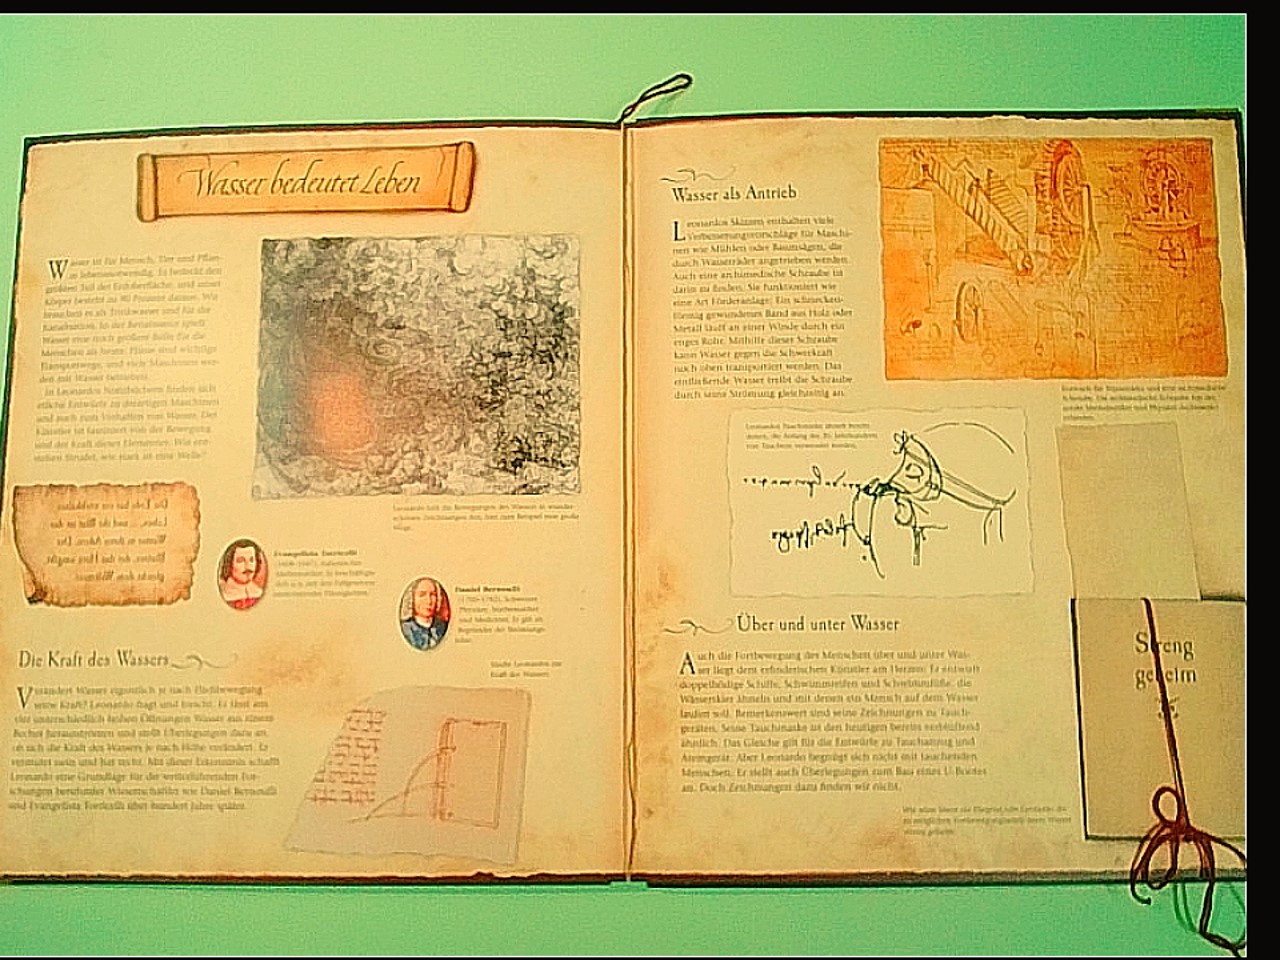 Wasser bedeutet Leben
Wasser ist für Mensch, Tier und Pflan-
ze lebensnotwendig. Es bedeckt den
größten Teil der Erdoberfläche, und unser
Körper besteht zu Prozent daraus. Wir
brauchen es als Trinkwasser und für die
Kanalisation. In der Renaissance spielt
Wasser eine noch größere Rolle für die
Menschen als heute: Flüsse sind wichtige
Transportwege, und viele Maschinen wer-
den mit Wasser betrieben.
In Leonardos Notizbüchern finden sich
etliche Entwürfe zu derartigen Maschinen
und auch zum Verhalten von Wasser. Der
Künstler ist fasziniert von der Bewegung
und der Kraft dieses Elementes. Wie ent-
stehen Strudel, wie stark ist eine Welle?
Leonardo hält die Bewegungen des Wassers in wunder-
schönen Zeichnungen fest, hier zum Beispiel eine große
Woge.
Evangelista Torricelli
(1608–1647), italienischer
Mathematiker
Daniel Bernoulli
(1700–1782), Schweizer
Physiker, Mathematiker
und Mediziner. Er gilt als
Begründer der Strömungs-
lehre.
Die Kraft des Wassers
Verändert Wasser eigentlich je nach Fließbewegung
seine Kraft? Leonardo fragt und forscht. Er lässt aus
vier unterschiedlich hohen Öffnungen Wasser aus einem
Becher herausströmen und stellt Überlegungen dazu an,
ob sich die Kraft des Wassers je nach Höhe verändert. Er
vermutet nein und hat recht. Mit dieser Erkenntnis schafft
Leonardo eine Grundlage für die weiterführenden For-
schungen berühmter Wissenschaftler wie Daniel Bernoulli
und Evangelista Torricelli über hundert Jahre später.
Studie Leonardos zur
Kraft des Wassers
Wasser als Antrieb
Leonardos Skizzen enthalten viele
Verbesserungsvorschläge für Maschi-
nen wie Mühlen oder Baumsägen, die
durch Wasserräder angetrieben werden.
Auch eine archimedische Schraube ist
darin zu finden. Sie funktioniert wie
eine Art Förderanlage: Ein schnecken-
förmig gewundenes Band aus Holz oder
Metall läuft an einer Winde durch ein
enges Rohr. Mithilfe dieser Schraube
kann Wasser gegen die Schwerkraft
nach oben transportiert werden. Das
entfließende Wasser treibt die Schraube
durch seine Strömung gleichzeitig an.
Leonardos Tauchmaske ähnelt bereits
denen, die Anfang des 20. Jahrhunderts
von Tauchern verwendet werden.
Über und unter Wasser
Auch die Fortbewegung des Menschen über und unter Was-
ser liegt dem erfinderischen Künstler am Herzen: Er entwirft
doppelbödige Schiffe, Schwimmreifen und Schwimmfüße, die
Wasserskier ähneln und mit denen ein Mensch auf dem Wasser
laufen soll. Bemerkenswert sind seine Zeichnungen zu Tauch-
geräten. Seine Tauchmaske ist den heutigen bereits verblüffend
ähnlich. Das Gleiche gilt für die Entwürfe zu Tauchanzug und
Atemgerät. Aber Leonardo begnügt sich nicht mit tauchenden
Menschen. Er stellt auch Überlegungen zum Bau eines U-Bootes
an. Doch Zeichnungen dazu finden wir nicht.
Streng
geheim